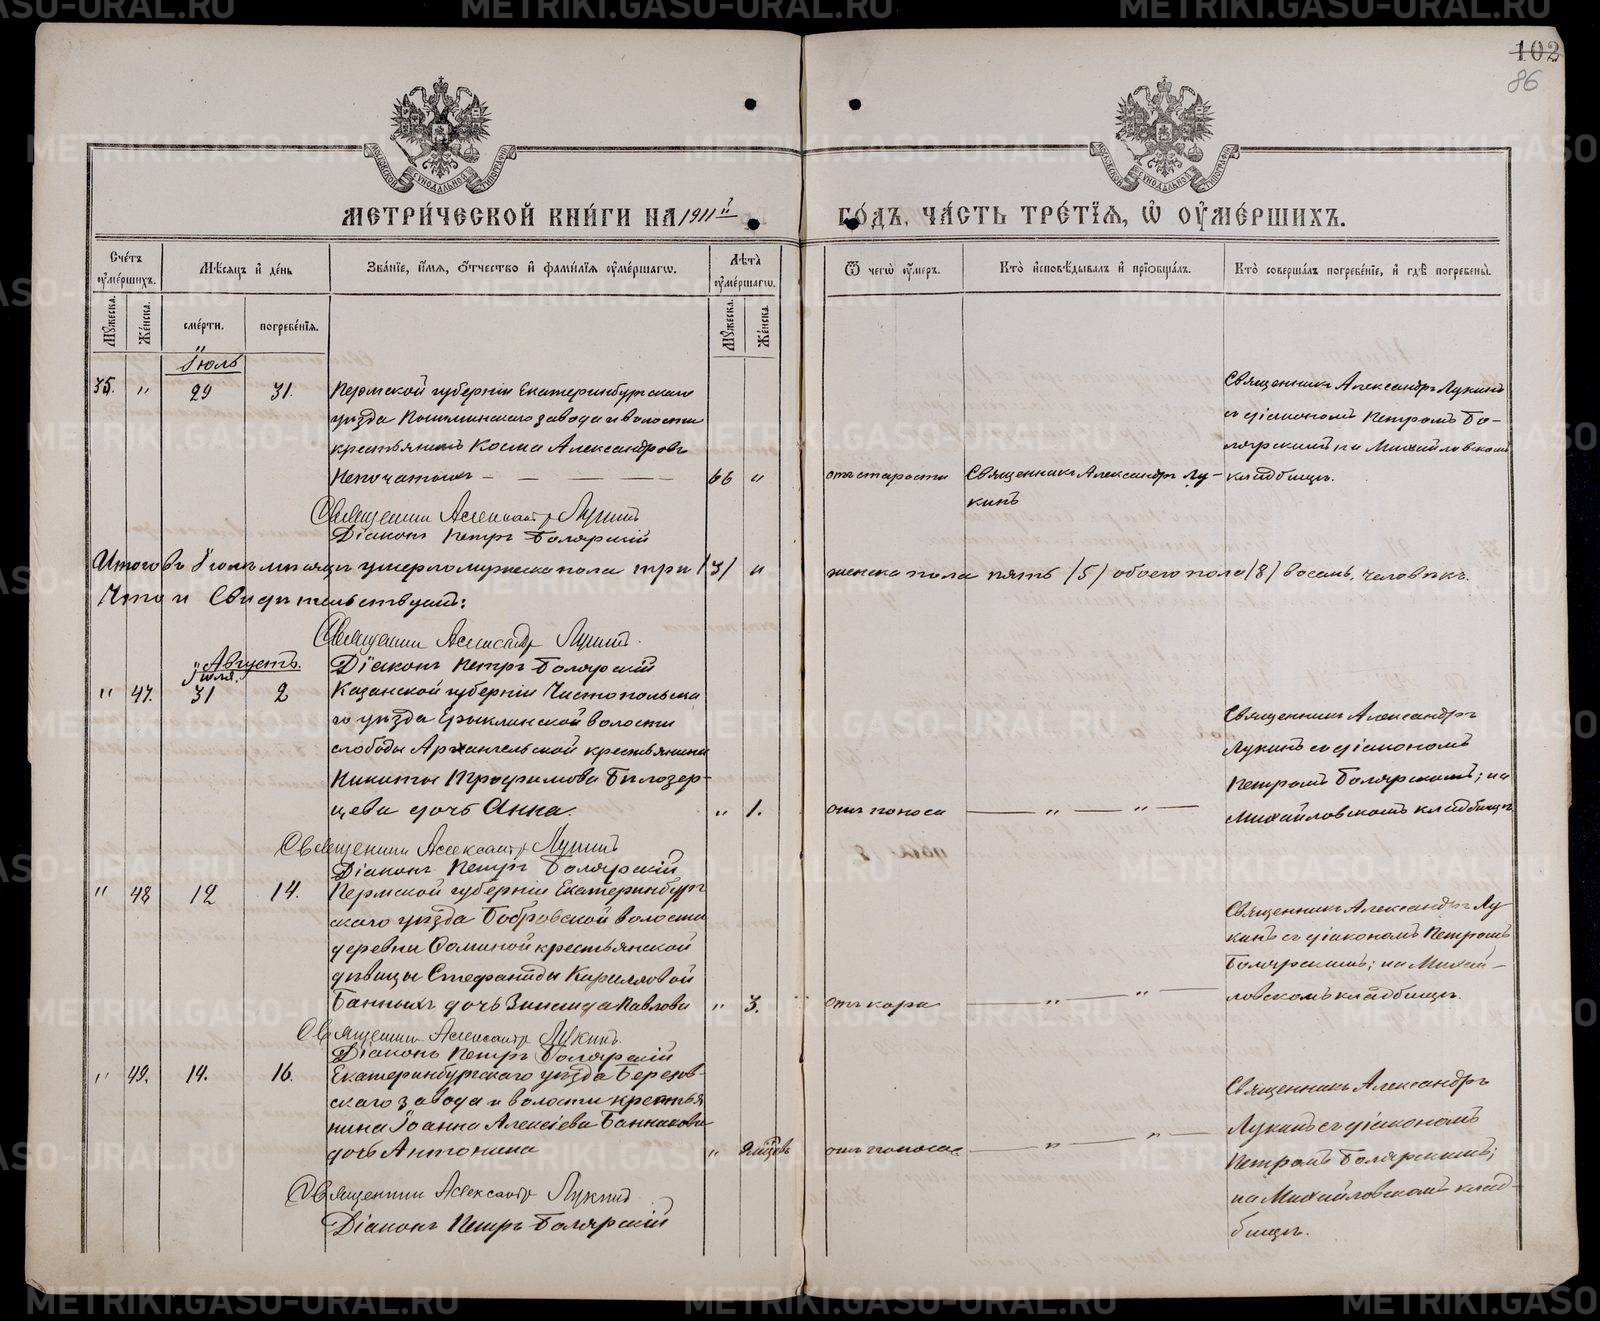 METRIKI.GASO-URAL.RU
102
86
МЕТРИ́ЧЕСКОЙ КНИ́ГИ НА 1911 й
ГО́ДЪ, ЧА́СТЬ ТРЕ́ТЇѦ, Ѡ҆ ОУ҆МЕ́РШИХЪ.
Сче́тъ оу҆ме́ршихъ.
Мѣ́сяцъ и҆ де́нь
Зва́нїе, и҆́мя, ѻ҆́тчество и҆ фами́лїя оу҆ме́ршагѡ.
Лѣ́та оу҆ме́ршагѡ.
Ѿ чегѡ̀ оу҆́меръ.
Кто̀ и҆сповѣ́дывалъ и҆ прїѡбща́лъ.
Кто̀ соверша́лъ погребе́нїе, и҆ гдѣ̀ погребены̀.
Мꙋ́жеска.
Же́нска.
сме́рти.
погребе́нїя.
Мꙋ́жеска.
Же́нска.
Іюль
35. " 29 31. Пермской губерніи Екатеринбургскаго
уѣзда Пышминскаго завода и волости
крестьянинъ Косма Александровъ
Непочатыхъ — — — — — 66 "
отъ старости
Священникъ Александръ Лу-
кинъ
Священникъ Александръ Лукинъ
съ діакономъ Петромъ Бо-
лярскимъ на Михайловскомъ
кладбищѣ.
Священникъ Александръ Лукинъ
Діаконъ Петръ Болярскій
Итого въ Іюлѣ мѣсяцѣ умерло мужеска пола три /3/ " женска пола пять /5/ обоего пола /8/ восемь человѣкъ.
Что и Свидѣтельствуемъ:
Священникъ Александръ Лукинъ.
Діаконъ Петръ Болярскій
Августъ.
Іюля.
" 47. 31 2 Казанской губерніи Чистопольска
го уѣзда Ерыклинской волости
слободы Архангельской крестьянина
Никиты Трофимова Бѣлозер-
цева дочь Анна. " 1.
отъ поноса — " — " —
Священникъ Александръ
Лукинъ съ діакономъ
Петромъ Болярскимъ; на
Михайловскомъ кладбищѣ
Священникъ Александръ Лукинъ
Діаконъ Петръ Болярскій
" 48 12 14. Пермской губерніи Екатеринбург
скаго уѣзда Бобровской волости
деревни Фоминой крестьянской
дѣвицы Стефаниды Карилловой
Банныхъ дочь Зинаида Павлова " 3.
отъ кори — " — " —
Священникъ Александръ Лу-
кинъ съ діакономъ Петромъ
Болярскимъ; на Михай-
ловскомъ кладбищѣ.
Священникъ Александръ Лукинъ.
Діаконъ Петръ Болярскій
" 49. 14. 16. Екатеринбургскаго уѣзда Березов-
скаго завода и волости крестья
нина Іоанна Алексіева Банникова
дочь Антонина "
отъ поноса — " — " —
Священникъ Александръ
Лукинъ съ діакономъ
Петромъ Болярскимъ;
на Михайловскомъ клад-
бищѣ.
Священникъ Александръ Лукинъ
Діаконъ Петръ Болярскій